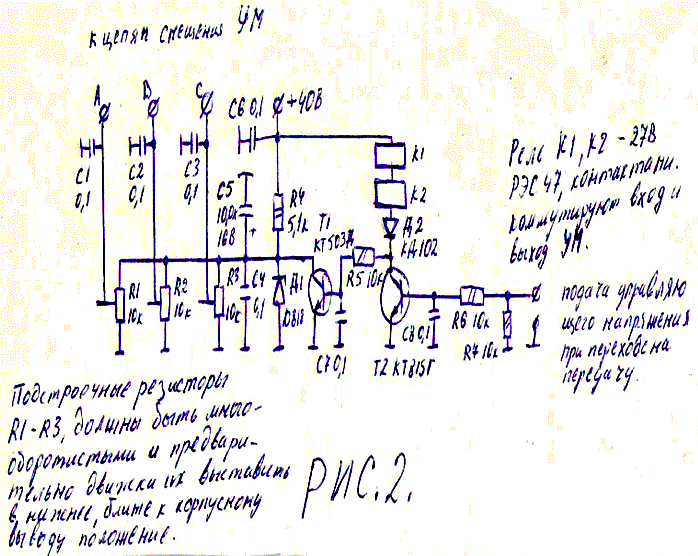 к цепям смещения УМ
А В С
С6 0,1 +40В
С1 0,1
С2 0,1
С3 0,1
С5 10,0х16В +
R4 5,1к
Т1 КТ503Д
К1
К2
Д2 КД102
Реле К1, К2 - 27В
РЭС 47, контактами.
коммутируют вход и
выход УМ.
R1 10к
R2 10к
R3 10к
С4 0,1
Д1 D818
R5 10к
С7 0,1
Т2 КТ815Г
С8 0,1
R6 10к
R7 10к
подача управляю
щего напряжения
при переходе на
передачу.
Подстроечные резисторы
R1-R3, должны быть много-
оборотистыми и предвари-
тельно движки их выставить
в нижнее, ближе к корпусному
выводу положение.
РИС.2.